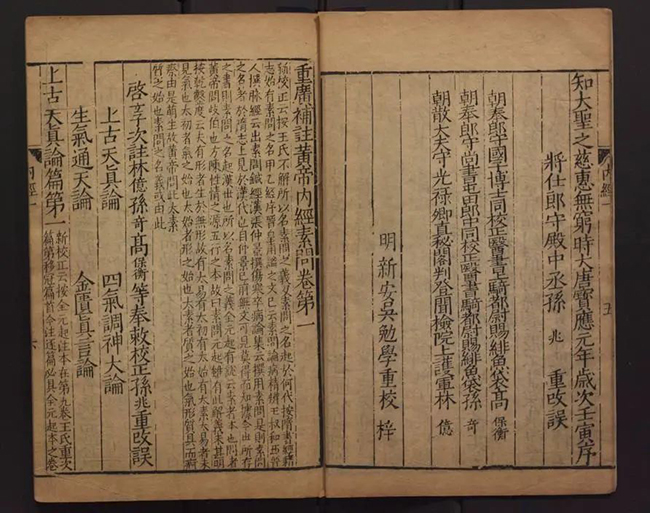 知大聖之慈惠無窮時大唐寶應元年歲次壬寅序
將仕郎守殿中丞孫 兆 重改誤
朝奉郎守國子博士同校正醫書上騎都尉賜緋魚袋高 保衡
朝奉郎守尚書屯田郎中同校正醫書騎都尉賜緋魚袋孫 奇
朝散大夫守光祿卿直秘閣判登聞檢院上護軍林 億
明新安吳勉學重校 梓
內經一
五
重廣補註黃帝內經素問卷第一
新校正云按王氏不解所以名素問之義及素問之名起於何代按隋書經籍
志始有素問之名甲乙經序晉皇甫謐之文已云素問論病精辨王叔和西晉
人撰脈經云出素問鍼經漢張仲景撰傷寒卒病論集云撰用素問是則素問
之名著於隋志上見於漢代也自仲景已前無文可見莫得而知據今世所存
之書則素問之名起漢世也所以名素問之義全元起有說云素者本也問者
黃帝問岐伯也方陳性情之源五行之本故曰素問元起雖有此解義未甚明
按乾鑿度云夫有形者生於無形故有太易有太初有太始有太素太易者未
見氣也太初者氣之始也太始者形之始也太素者質之始也氣形質具而痾
瘵由是萌生故黃帝問此太素
質之始也素問之名義或由此
啓玄子次註林億孫奇高保衡等奉敕校正孫兆重改誤
上古天真論 四氣調神大論
生氣通天論 金匱真言論
上古天真論篇第一
新校正云按全元起注本在第九卷王氏重次
篇第移冠篇首今注逐篇必具全元起本之卷
內經一
六